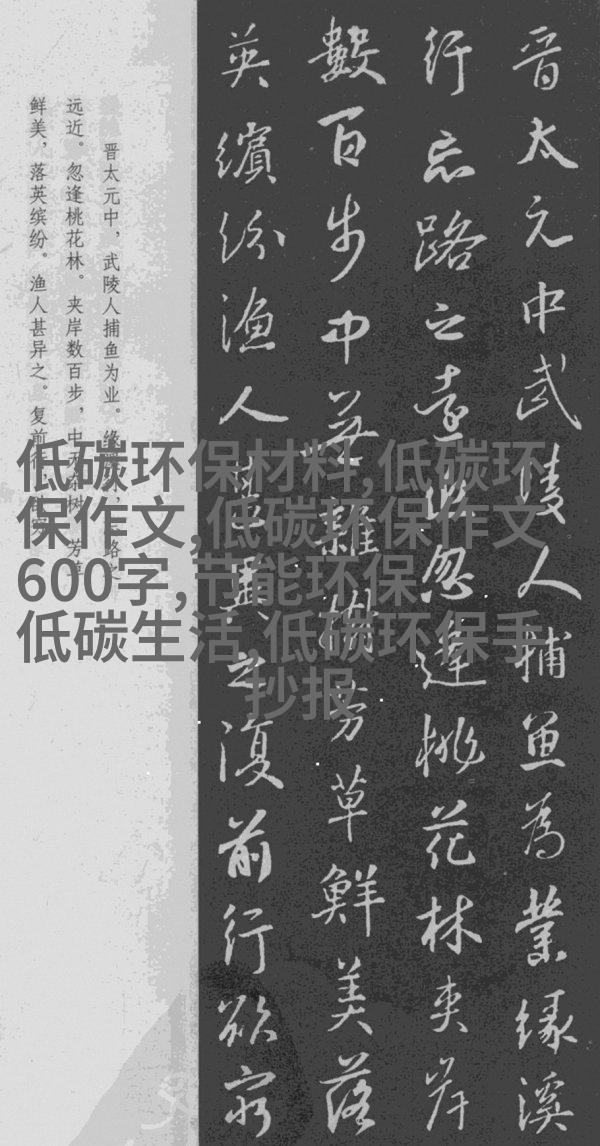 晋太元中武陵人捕魚為業緣溪
行忘路之遠近忽逢桃花林夹岸
數百步中無雜樹芳草鮮美落
英繽紛漁人甚異之復前行欲窮
晋太元中，武陵人捕鱼为业。缘溪行，忘路之
远近。忽逢桃花林。夹岸数百步，中无杂树，芳草
鲜美，落英缤纷。渔人甚异之。复前行，欲穷
低碳环保材料,低碳环
保作文,低碳环保作文
600字,节能环保
低碳生活,低碳环保手
抄报